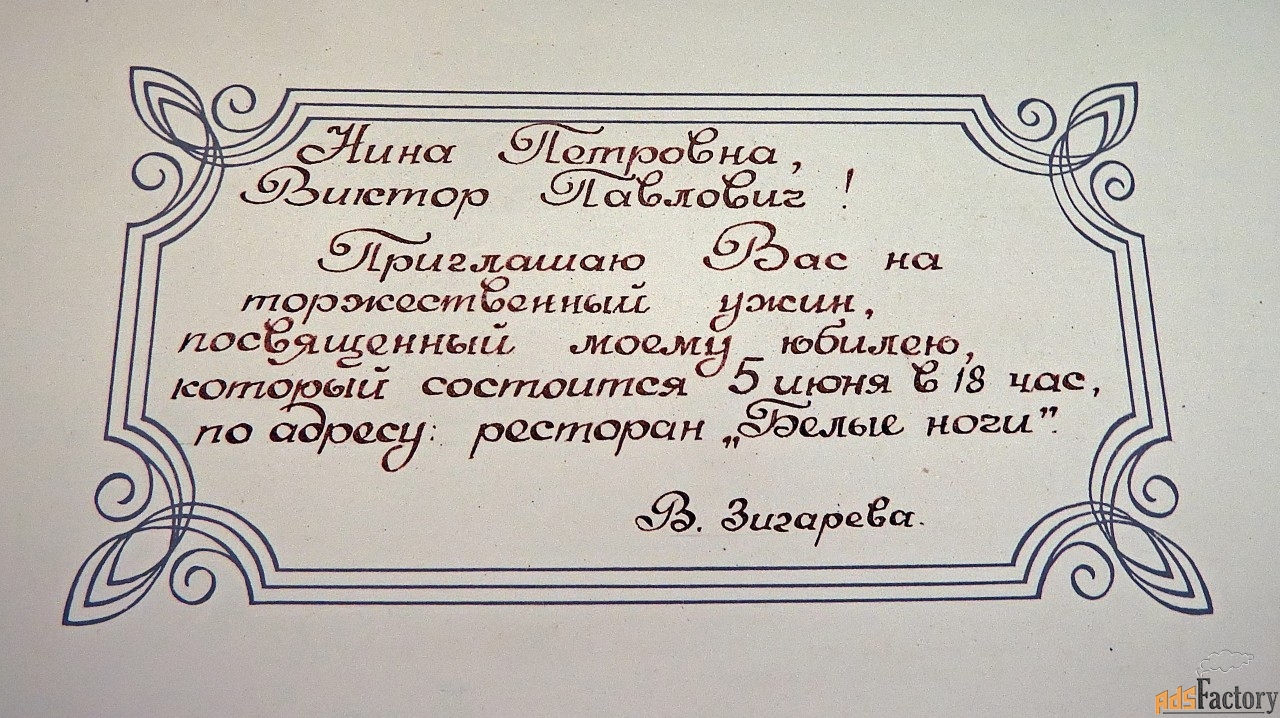 Нина Петровна,
Виктор Павлович!
Приглашаю Вас на
торжественный ужин,
посвященный моему юбилею,
который состоится 5 июня в 18 час,
по адресу: ресторан „Белые ночи”.
В. Зигарева.
AdsFactory